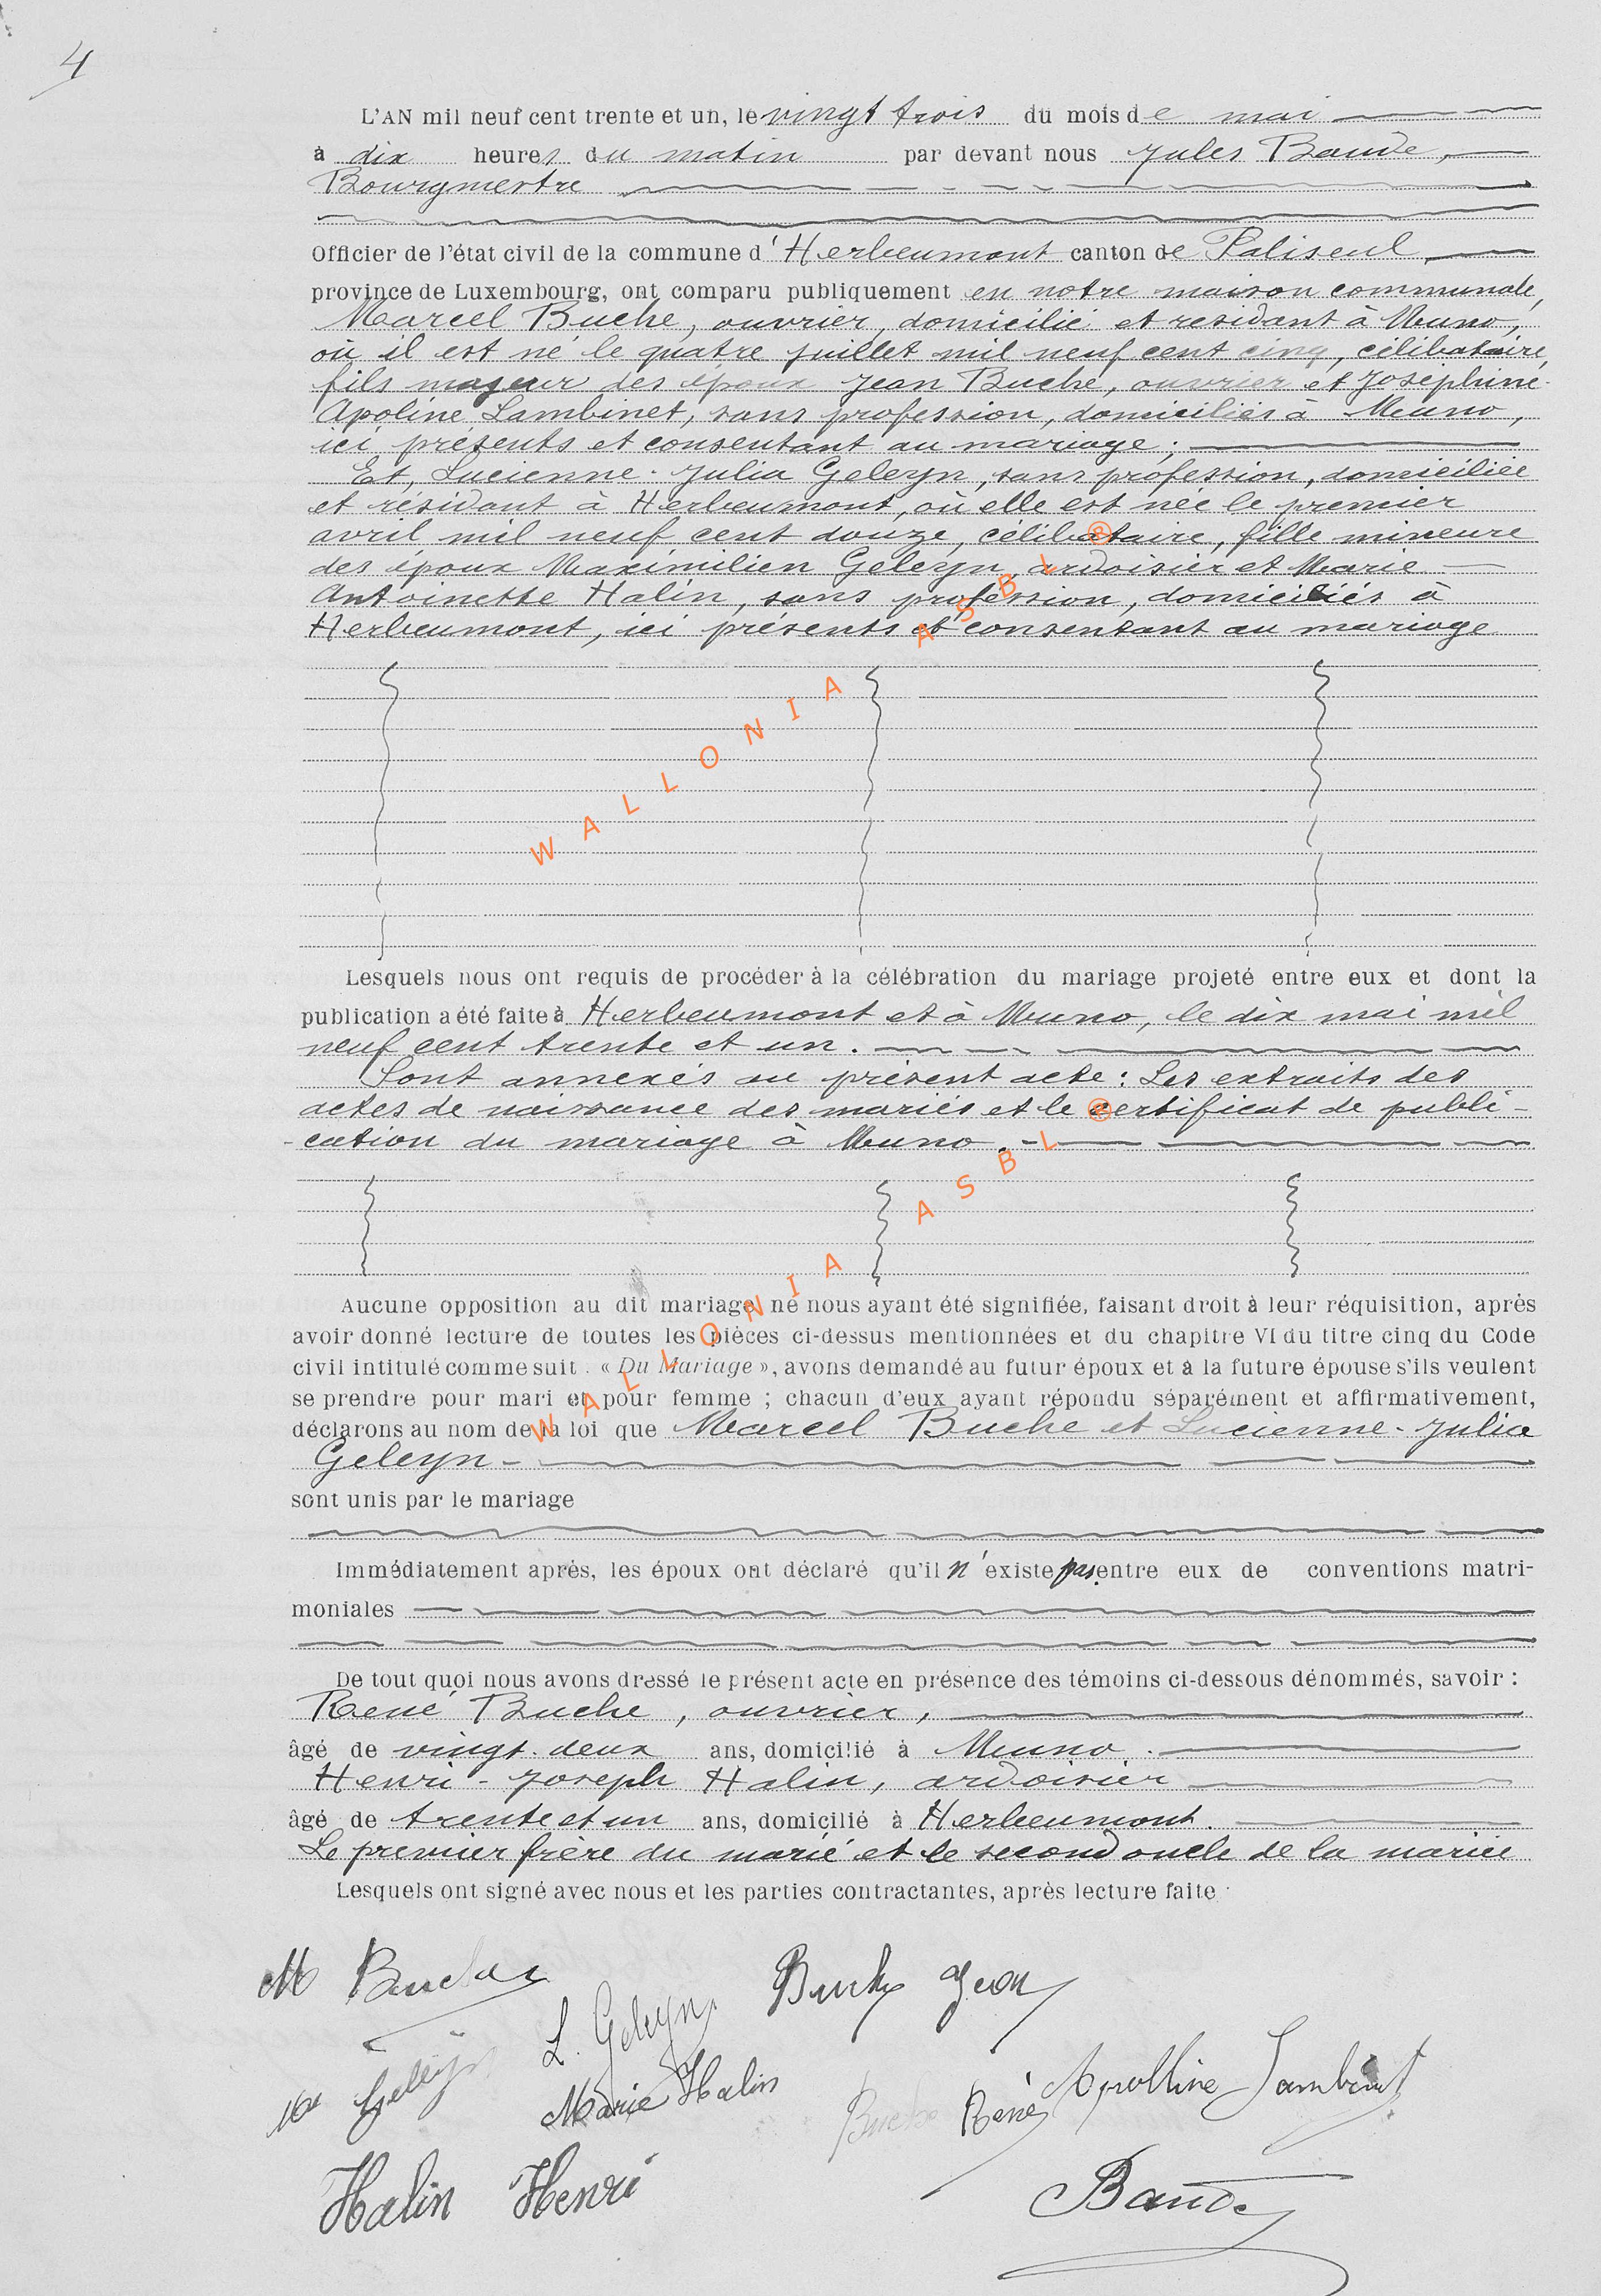 4
L'AN mil neuf cent trente et un, le vingt trois du mois de mai
à dix heures du matin par devant nous Jules Baude,
Bourgmestre
Officier de l'état civil de la commune d'Herbeumont canton de Paliseul
province de Luxembourg, ont comparu publiquement en notre maison communale,
Marcel Buche, ouvrier, domicilié et residant à Muno,
où il est né le quatre juillet mil neuf cent cinq, célibataire,
fils majeur des époux Jean Buche, ouvrier et Joséphine-
Apoline Lambinet, sans profession, domiciliés à Muno,
ici présents et consentant au mariage;
Et, Lucienne-Julia Geleyn, sans profession, domiciliée
et résidant à Herbeumont, où elle est née le premier
avril mil neuf cent douze, célibataire, fille mineure
des époux Maximilien Geleyn, ardoisier et Marie
Antoinette Halin, sans profession, domiciliés à
Herbeumont, ici présents et consentant au mariage
WALLONIA ASBL ®
Lesquels nous ont requis de procéder à la célébration du mariage projeté entre eux et dont la
publication a été faite à Herbeumont et à Muno, le dix mai mil
neuf cent trente et un.
Sont annexés au présent acte: Les extraits des
actes de naissance des mariés et le certificat de publi-
-cation du mariage à Muno.
WALLONIA ASBL ®
Aucune opposition au dit mariage ne nous ayant été signifiée, faisant droit à leur réquisition, après
avoir donné lecture de toutes les pièces ci-dessus mentionnées et du chapitre VI du titre cinq du Code
civil intitulé comme suit : « Du Mariage », avons demandé au futur époux et à la future épouse s'ils veulent
se prendre pour mari et pour femme ; chacun d'eux ayant répondu séparément et affirmativement,
déclarons au nom de la loi que Marcel Buche et Lucienne-Julia
Geleyn-
sont unis par le mariage
Immédiatement après, les époux ont déclaré qu'il n'existe pas entre eux de conventions matri-
moniales
De tout quoi nous avons dressé le présent acte en présence des témoins ci-dessous dénommés, savoir :
René Buche, ouvrier,
âgé de vingt-deux ans, domicilié à Muno.
Henri-Joseph Halin, ardoisier
âgé de trente et un ans, domicilié à Herbeumont.
Le premier frère du marié et le second oncle de la mariée
Lesquels ont signé avec nous et les parties contractantes, après lecture faite
M
L. Geleyn Buche Jean
Marie Halin Buche René Apolline Lambinet
Halin Henri Baude